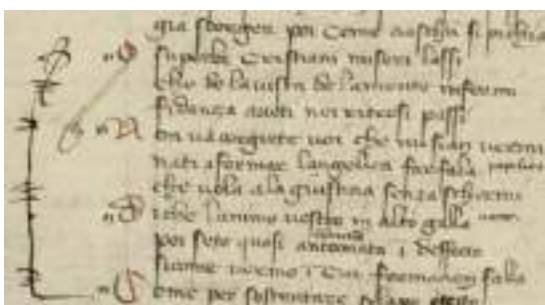 gia scorger poi come ciaschun si pichia
O superbi cristiani miseri lassi
che de la vista de la mente infermi
fidanza aveti nei retrosi passi
Non vacorgete voi che nui sian vermi
nati a formar langelica farfala
che vola a la giustitia senza schermi
Di che lanimo vostro in alto galla
poi sete quasi antomata i deffecto
si come vermo i cui formation falla
Come per sostentare